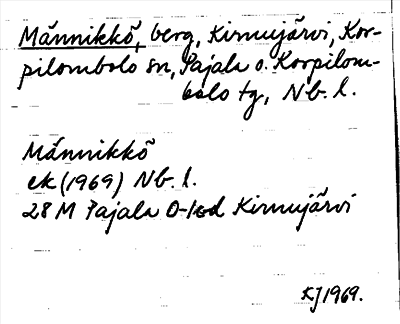 Männikkö, berg, Kirnujärvi, Kor-
pilombolo sn, Pajala o. Korpilom-
bolo tg, Nb. l.
Männikkö
ek (1969) Nb. l.
28 M Pajala Kirnujärvi
KJ 1969.